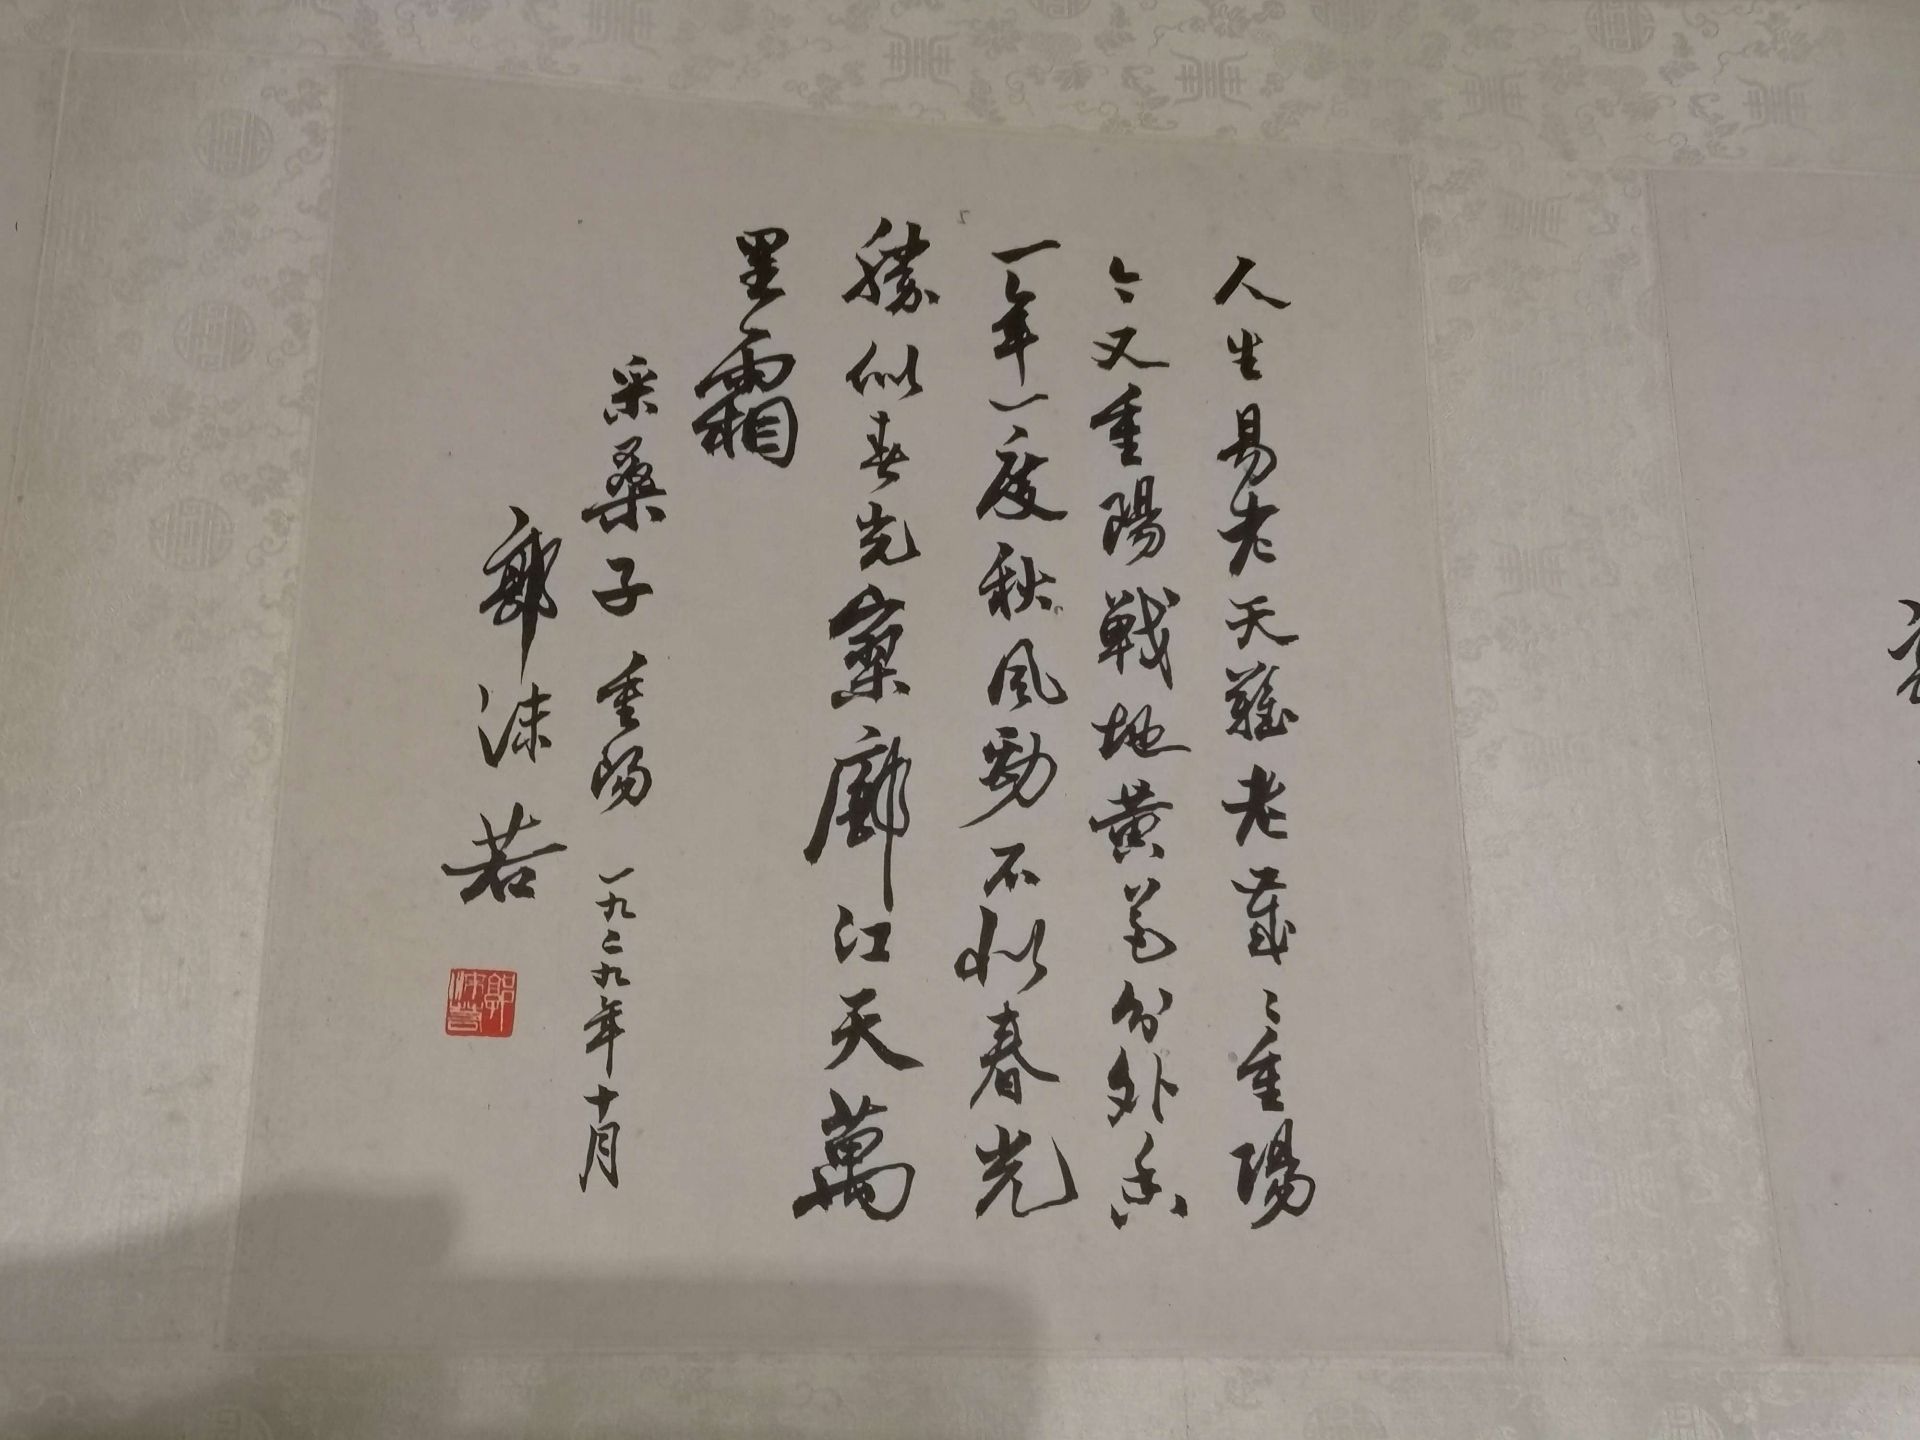 人生易老天難老歲〻重陽
今又重陽戰地黃花分外香
一年一度秋風勁不似春光
勝似春光寥廓江天萬
里霜
采桑子 重陽 一九二九年十月
郭沫若
郭沫若